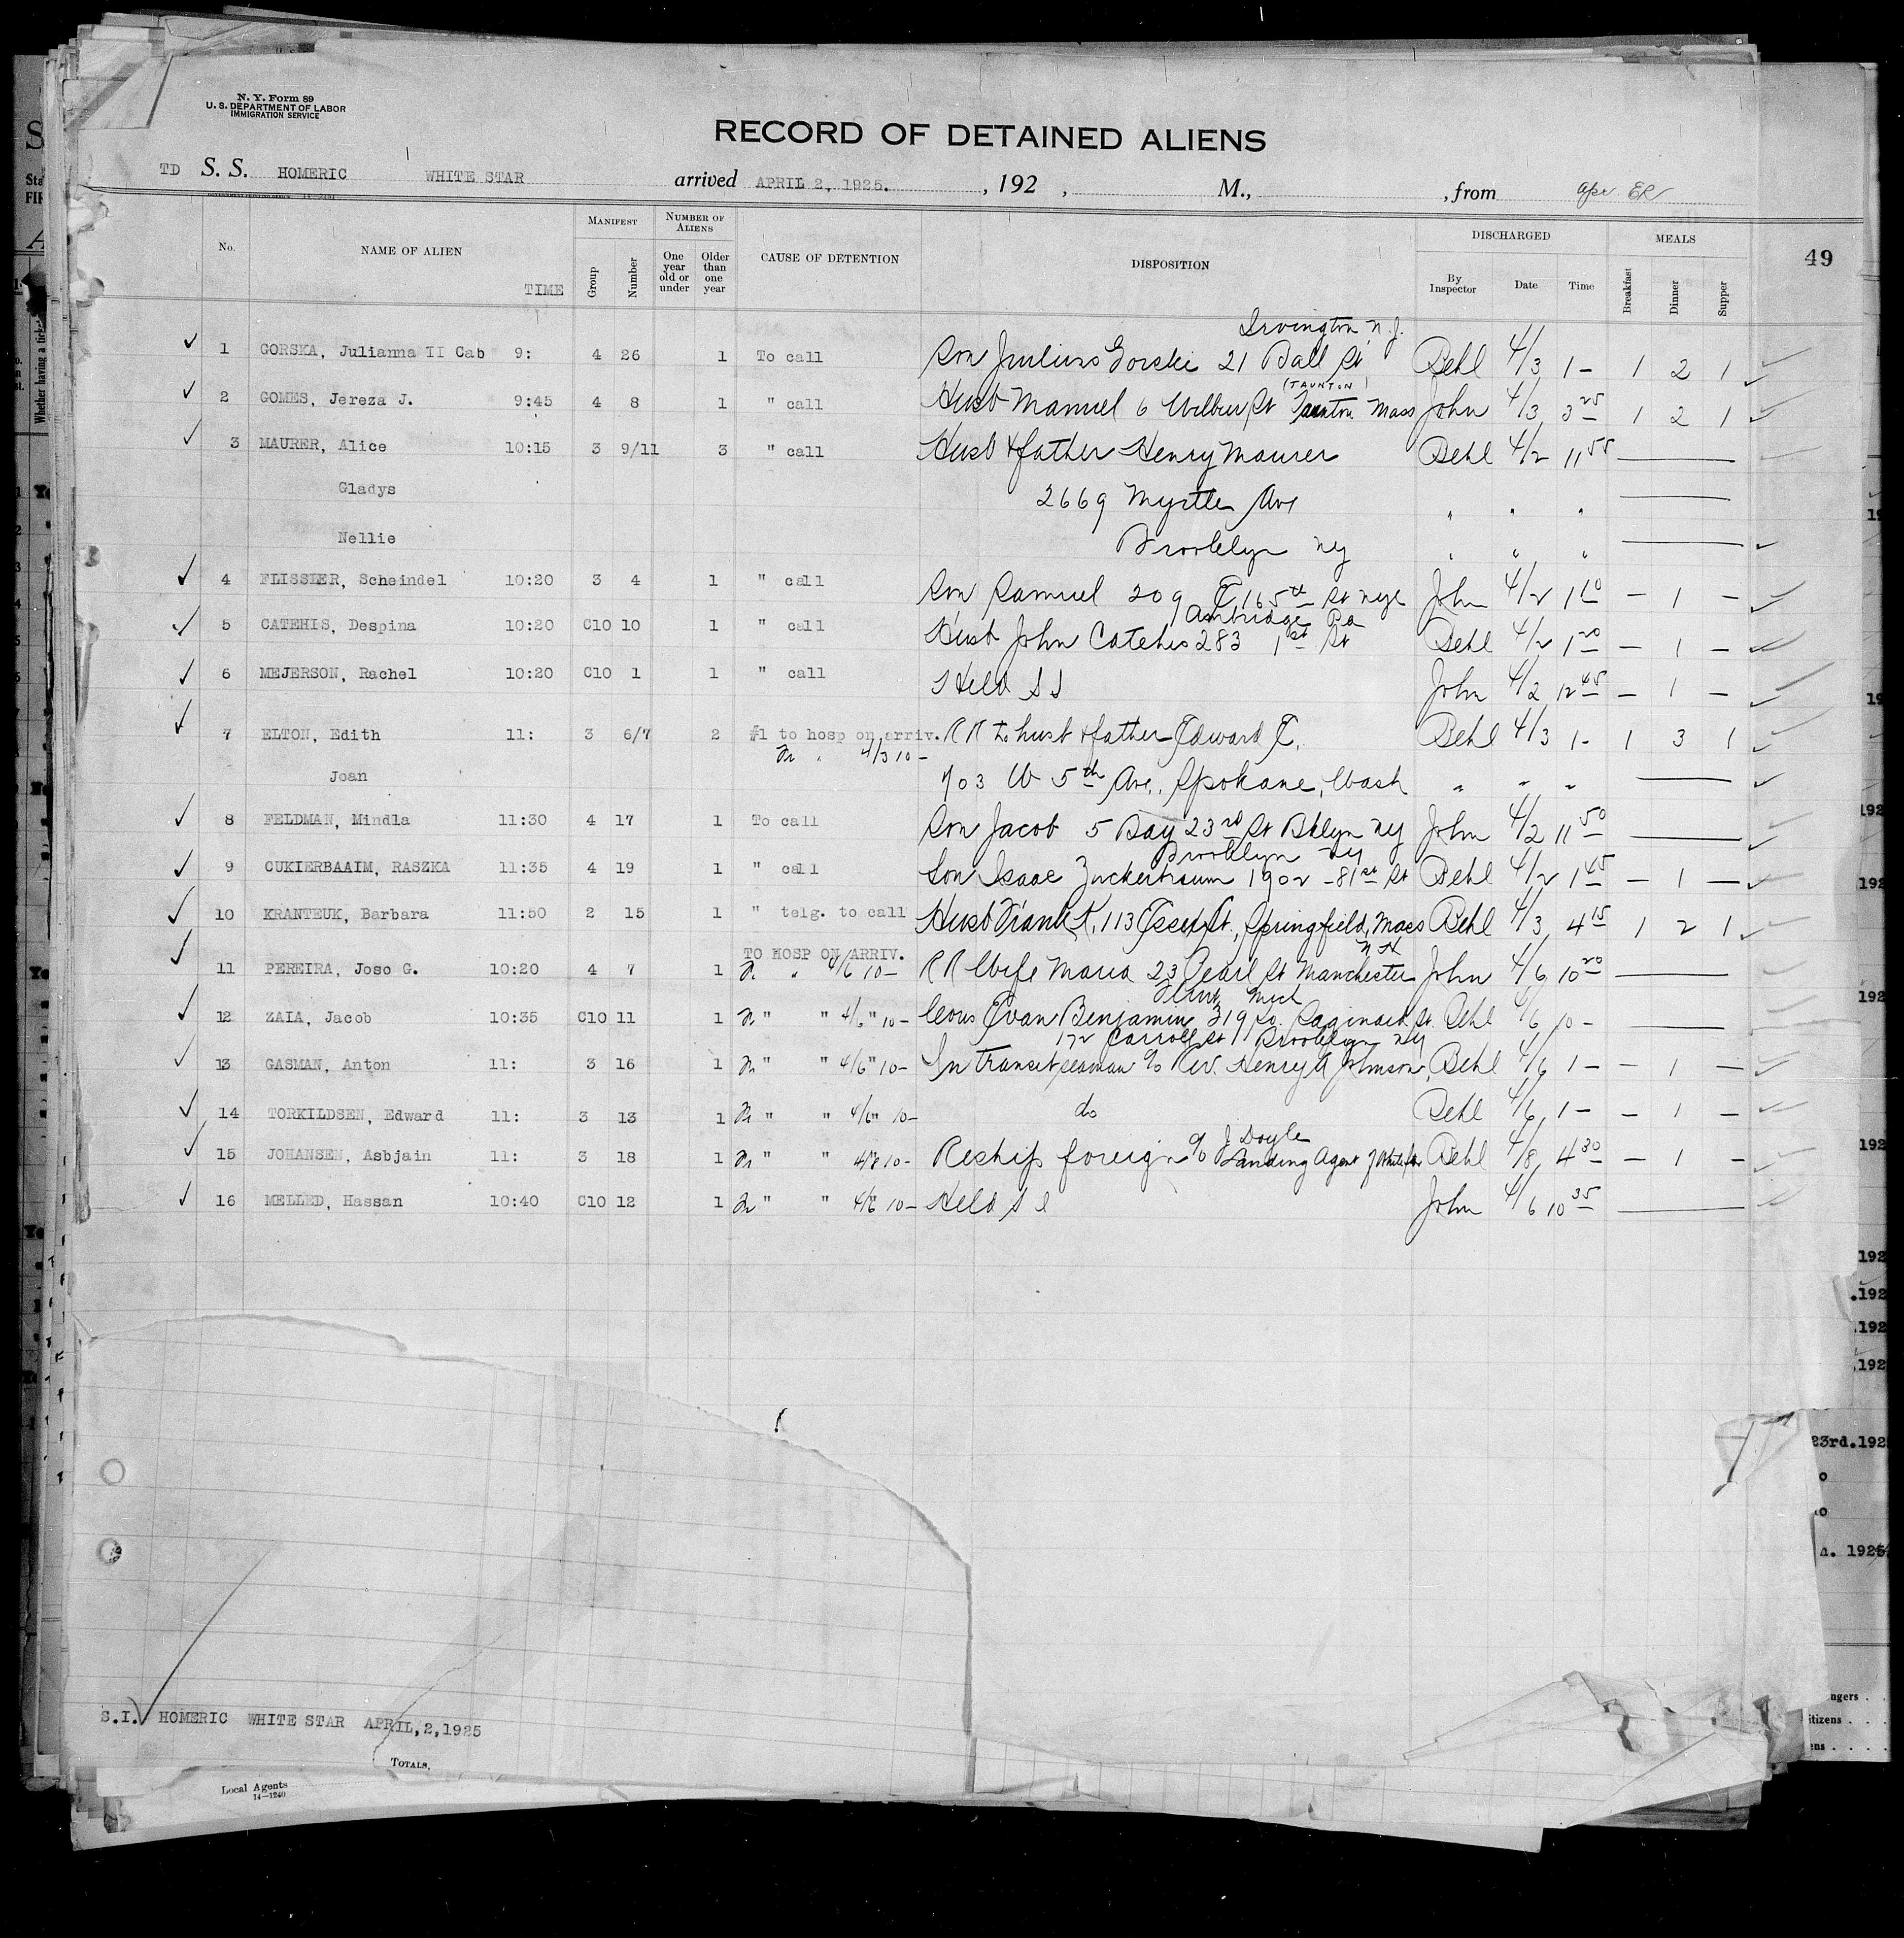 N. Y. Form 89
U. S. DEPARTMENT OF LABOR
IMMIGRATION SERVICE
RECORD OF DETAINED ALIENS
TD S. S. HOMERIC WHITE STAR arrived APRIL 2, 1925. , 192 , M., , from
49
No. NAME OF ALIEN TIME MANIFEST Group Number NUMBER OF ALIENS One year old or under Older than one year CAUSE OF DETENTION DISPOSITION DISCHARGED By Inspector Date Time MEALS Breakfast Dinner Supper
Irvington N. J.
1 GORSKA, Julianna II Cab 9: 4 26 1 To call Son Julius Gorski 21 Ball St Behl 4/3 1- 1 2 1
(TAUNTON)
2 GOMES, Jereza J. 9:45 4 8 1 " call Husb Manuel 6 Wilbur St Taunton Mass John 4/3 3 25 1 2 1
3 MAURER, Alice 10:15 3 9/11 3 " call Husb & father Henry Maurer Behl 4/2 11 55
Gladys 2669 Myrtle Ave " " "
Nellie Brooklyn NY " " "
4 FLISSLER, Scheindel 10:20 3 4 1 " call Son Samuel 209 E 165th St NYC John 4/2 1 10 - 1 -
Ambridge Pa
5 CATEHIS, Despina 10:20 C10 10 1 " call Husb John Catehis 283 1st St Behl 4/2 1 20 - 1 -
6 MEJERSON, Rachel 10:20 C10 1 1 " call Held S I John 4/2 12 45 - 1 -
7 ELTON, Edith 11: 3 6/7 2 #1 to hosp on arriv. R R to husb & father Edward E. Behl 4/3 1- 1 3 1
4/3 10-
Joan 703 W 5th Ave., Spokane, Wash " " "
8 FELDMAN, Mindla 11:30 4 17 1 To call Son Jacob 5 Bay 23rd St Bklyn NY John 4/2 11 50
Brooklyn NY
9 CUKIERBAAIM, RASZKA 11:35 4 19 1 " call Son Isaac Zuckerbraum 1902 - 81st St Behl 4/2 1 45 - 1 -
10 KRANTEUK, Barbara 11:50 2 15 1 " telg. to call Husb Frank K, 113 Essex St., Springfield, Mass Behl 4/3 4 15 1 2 1
TO HOSP ON ARRIV. N H
11 PEREIRA, Joso G. 10:20 4 7 1 " 4/6 10- R R Wife Maria 23 Pearl St Manchester John 4/6 10 20
Flint Mich
12 ZAIA, Jacob 10:35 C10 11 1 " " 4/6 " 10- Cous Evan Benjamin 319 So. Saginaw St. Behl 4/6 10-
172 Carroll St Brooklyn NY
13 GASMAN, Anton 11: 3 16 1 " " 4/6 " 10- In transit seaman c/o Rev. Henry A Johnson, Behl 4/6 1- - 1 -
14 TORKILDSEN, Edward 11: 3 13 1 " " 4/6 " 10- do Behl 4/6 1- - 1 -
J Doyle
15 JOHANSEN, Asbjain 11: 3 18 1 " " 4/8 10- Reship foreign c/o Landing Agent Behl 4/8 4 30 - 1 -
16 MELLED, Hassan 10:40 C10 12 1 " " 4/6 10- Held S I John 4/6 10 35
S.I. HOMERIC WHITE STAR APRIL,2,1925
TOTALS.
Local Agents
14-1240
23rd.192